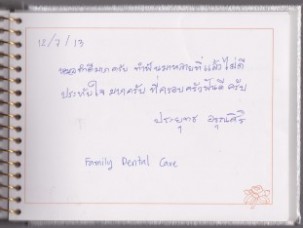 12/7/13
คุณหมอทำดีมากครับ ทำฟันมาหลายที่แล้วไม่ดี
ประทับใจ มากครับ ที่ครอบครัวฟันดี ครับ
ประยุทธ
Family Dental Care